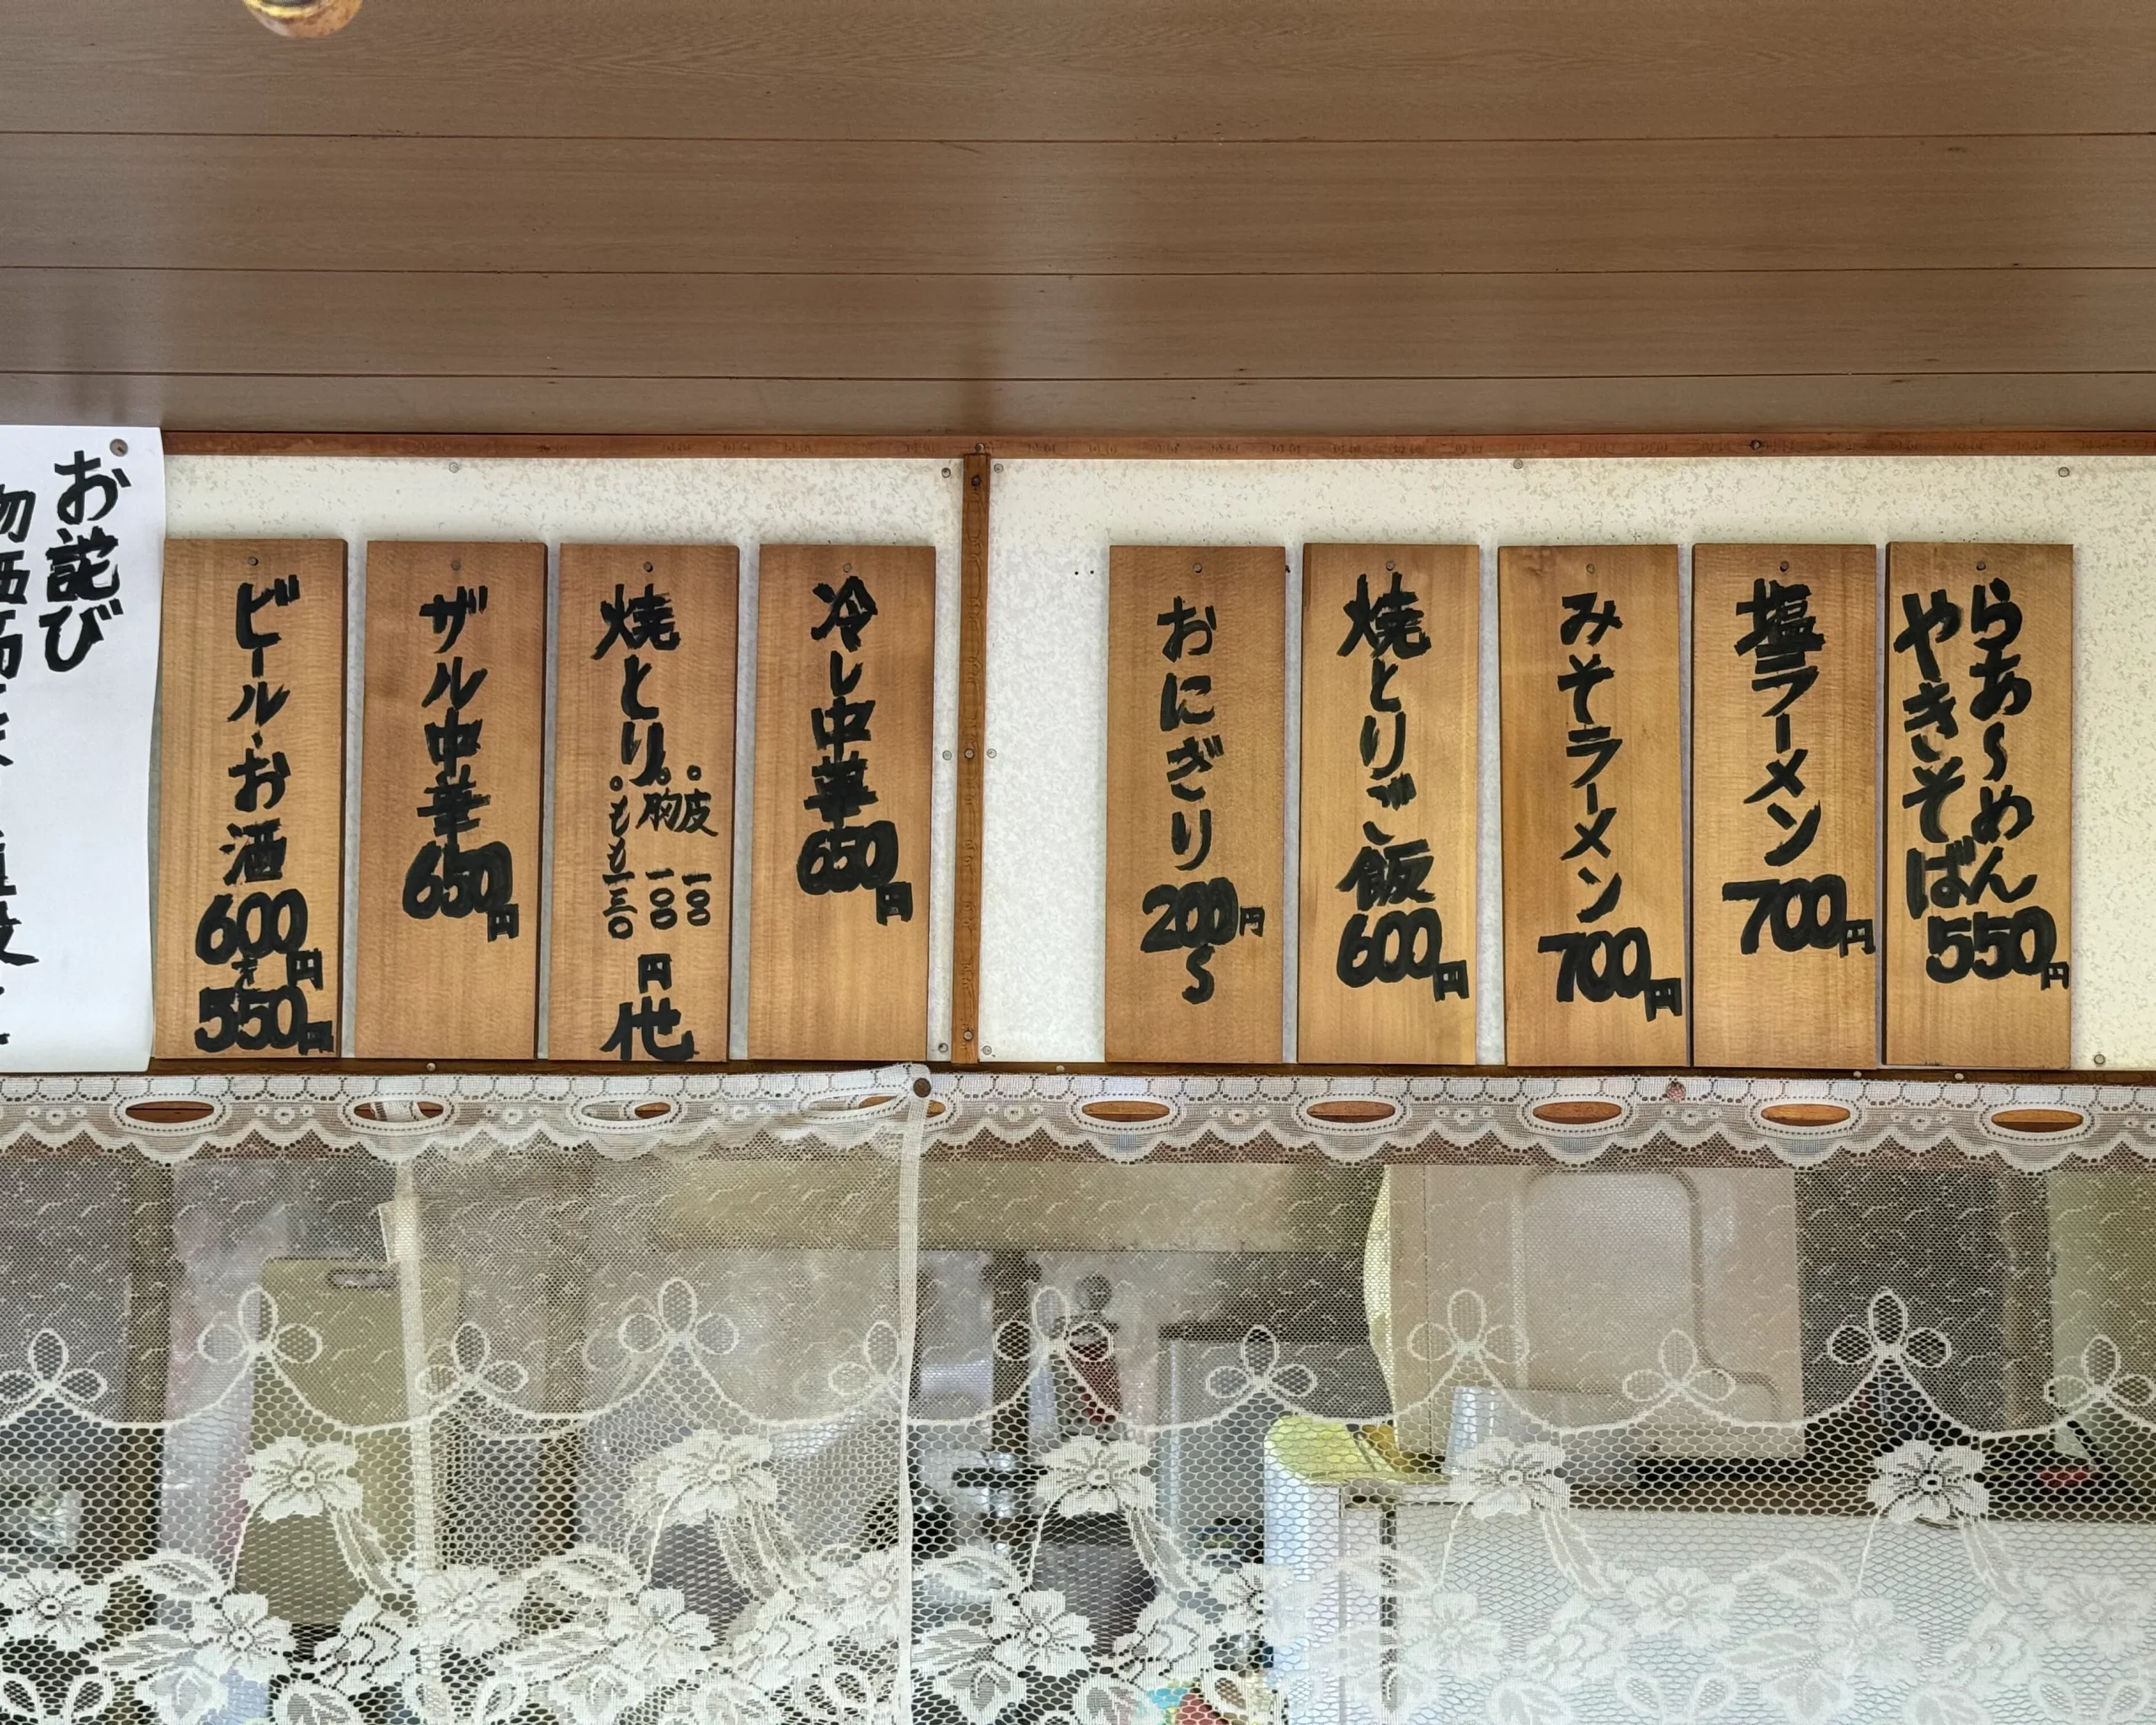 らあ〜めん
やきそば
550円
塩ラーメン
700円
みそラーメン
700円
焼とりご飯
600円
おにぎり
200円
〜
冷し中華
650円
焼とり
。皮 一〇〇
。胸 一〇〇
。もも 一三〇
円
他
ザル中華
650円
ビール・お酒
600円
550円
お詫び